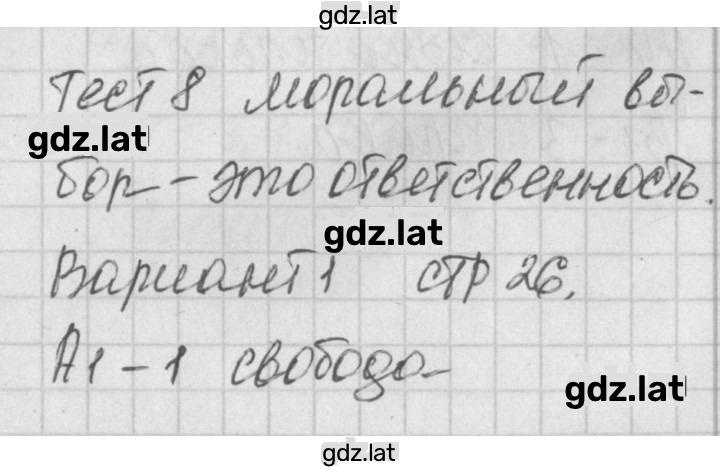 gdz.lat
Тест 8 моральный вы-
gdz.lat
бор - это ответственность.
gdz.lat
Вариант 1 стр 26.
А1 - 1 свобода
gdz.lat
gdz.lat